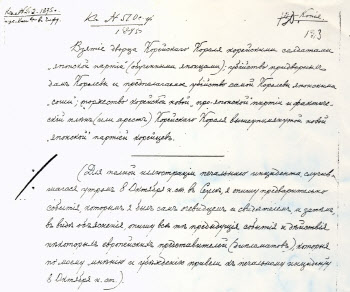 Къ № 570.
1895.
Взятіе дворца Корейскаго Короля корейскими солдатами
японской партіи (обученными японцами); убійство придворныхъ
дамъ Королевы и предполагаемое убійство самой Королевы японскими
соши; торжество корейской новой, про-японской партіи и фактиче-
скій плѣнъ (или арестъ) Корейскаго Короля вышеупомянутой новой
японской партіей корейцевъ.
(Для полной иллюстраціи печальнаго инцидента, случив-
шагося утромъ 8 Октября н. ст. въ Сеулѣ, я опишу предварительно
событія, которымъ я былъ самъ очевидцемъ и свидѣтелемъ, а затѣмъ,
въ видѣ объясненія, опишу всѣ тѣ предыдущія событія и дѣйствія
нѣкоторыхъ европейскихъ представителей (дипломатовъ), которыя
по моему мнѣнію и убѣжденію привели къ печальному инциденту
8 Октября н. ст.).